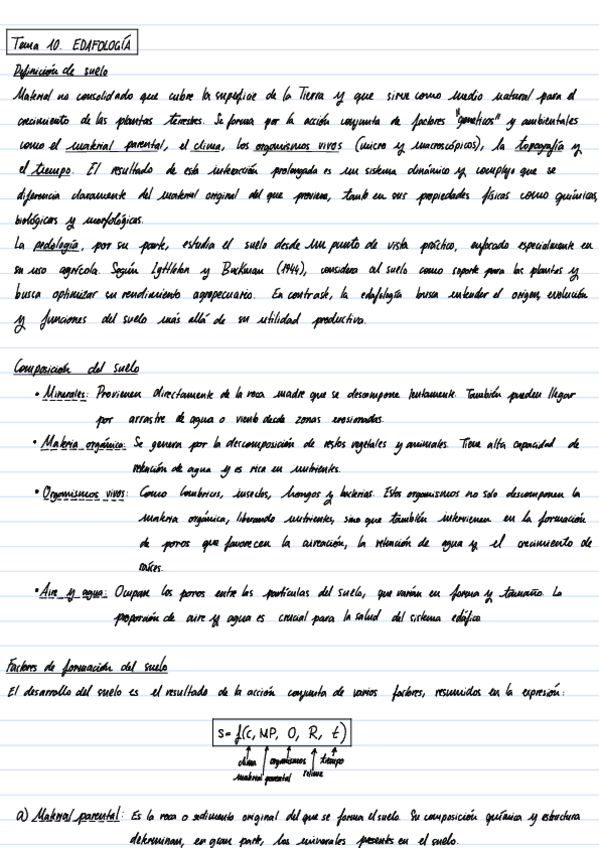 Tema 10. EDAFOLOGÍA
Definición de suelo
Material no consolidado que cubre la superficie de la Tierra y que sirve como medio natural para el
crecimiento de las plantas terrestres. Se forma por la acción conjunta de factores "genéticos" y ambientales
como el material parental, el clima, los organismos vivos (micro y macroscópicos), la topografía y
el tiempo. El resultado de esta interacción prolongada es un sistema dinámico y complejo que se
diferencia claramente del material original del que proviene, tanto en sus propiedades físicas como químicas,
biológicas y morfológicas.
La pedología, por su parte, estudia el suelo desde un punto de vista práctico, enfocado especialmente en
su uso agrícola. Según Lyttleton y Buckman (1944), considera al suelo como soporte para las plantas y
busca optimizar su rendimiento agropecuario. En contraste, la edafología busca entender el origen, evolución
y funciones del suelo más allá de su utilidad productiva.
Composición del suelo
• Minerales: Provienen directamente de la roca madre que se descompone lentamente. También pueden llegar
por arrastre de agua o viento desde zonas erosionadas.
• Materia orgánica: Se genera por la descomposición de restos vegetales y animales. Tiene alta capacidad de
retención de agua y es rica en nutrientes.
• Organismos vivos: Como lombrices, insectos, hongos y bacterias. Estos organismos no solo descomponen la
materia orgánica, liberando nutrientes, sino que también intervienen en la formación
de poros que favorecen la aireación, la retención de agua y el crecimiento de
raíces.
• Aire y agua: Ocupan los poros entre las partículas del suelo, que varían en forma y tamaño. La
proporción de aire y agua es crucial para la salud del sistema edáfico
Factores de formación del suelo
El desarrollo del suelo es el resultado de la acción conjunta de varios factores, resumidos en la expresión:
S= f(c, MP, O, R, t)
clima organismos tiempo
material parental relieve
a) Material parental: Es la roca o sedimento original del que se forma el suelo. Su composición química y estructura
determinan, en gran parte, los minerales presents en el suelo.